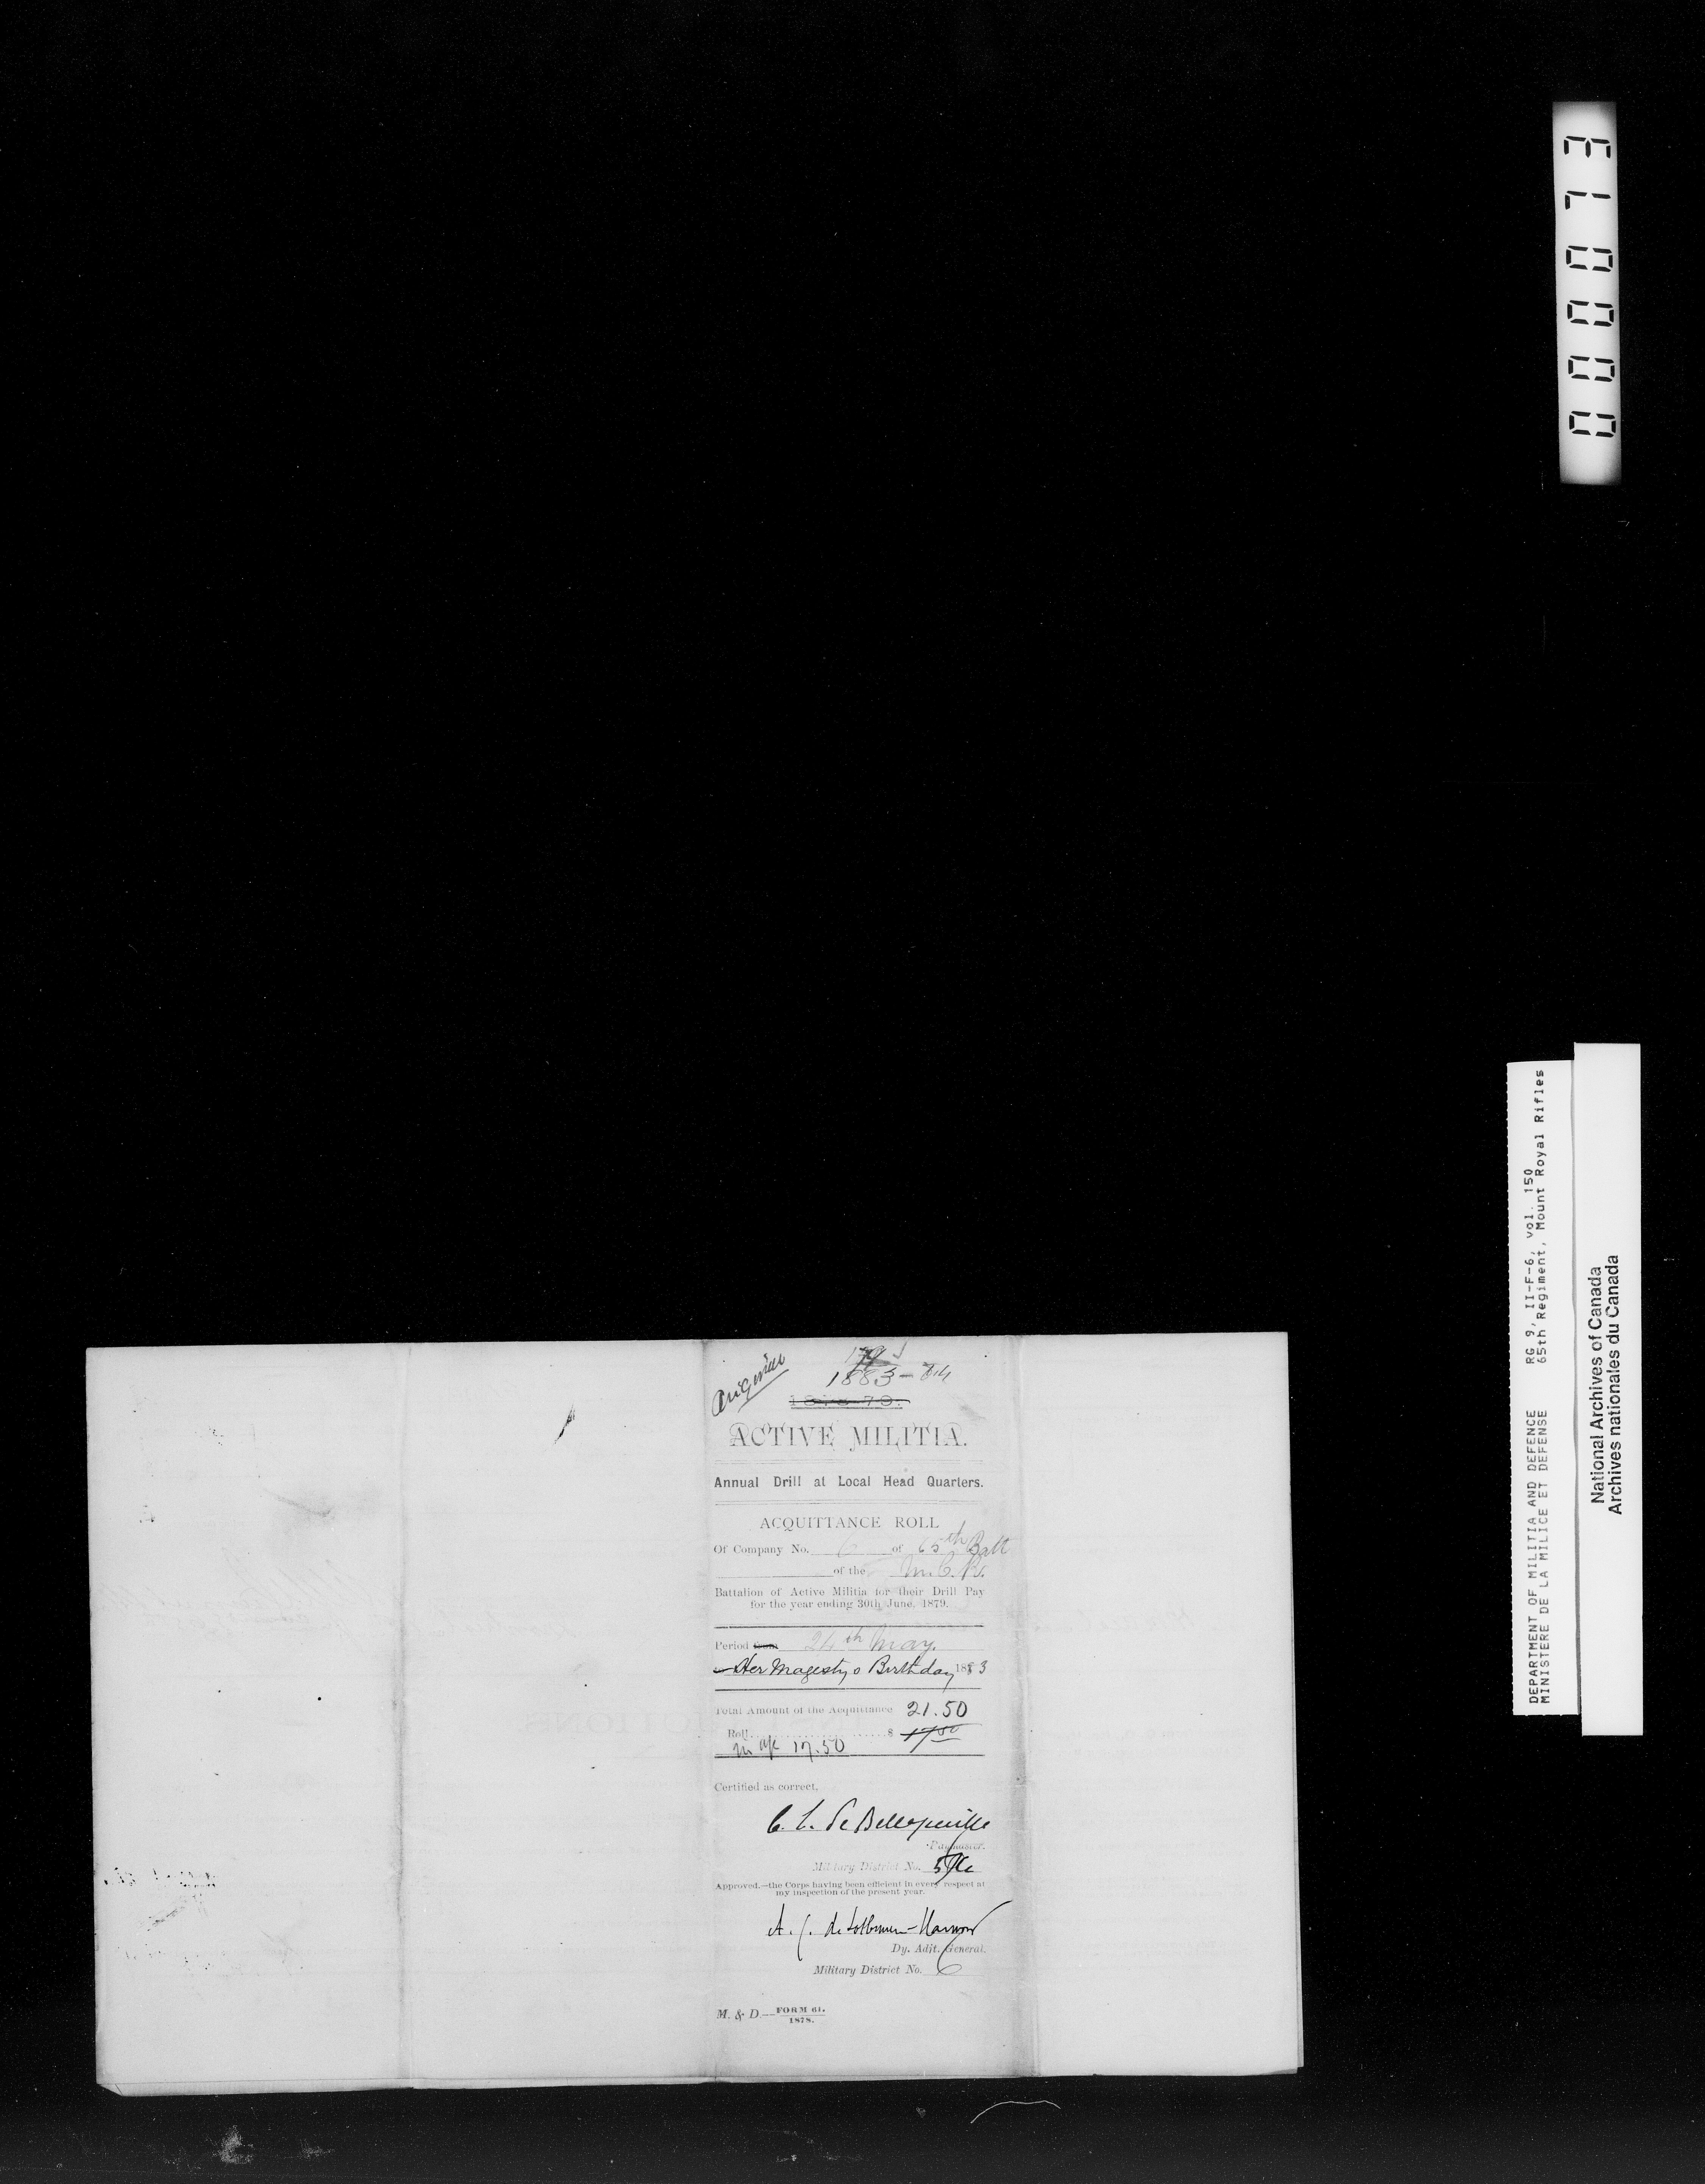 Original
1883-84
1878-79.
ACTIVE MILITIA.
Annual Drill at Local Head Quarters.
ACQUITTANCE ROLL
Of Company No. 6 of 65th Batt
of the M. R.
Battalion of Active Militia for their Drill Pay
for the year ending 30th June, 1879.
Period from 24th May.
Her Magestys Birthday 1883
Total Amount of the Acquittance 21.50
Roll..................$ 17.50
17.50
Certified as correct,
Paymaster.
Military District No. 5 & 6
Approved.—the Corps having been efficient in every respect at
my inspection of the present year.
Dy. Adjt. General.
Military District No. 6
M. & D.—FORM 61.
1878.
000073
DEPARTMENT OF MILITIA AND DEFENCE RG 9, II-F-6, vol. 150
MINISTERE DE LA MILICE ET DEFENSE 65th Regiment, Mount Royal Rifles
National Archives of Canada
Archives nationales du Canada